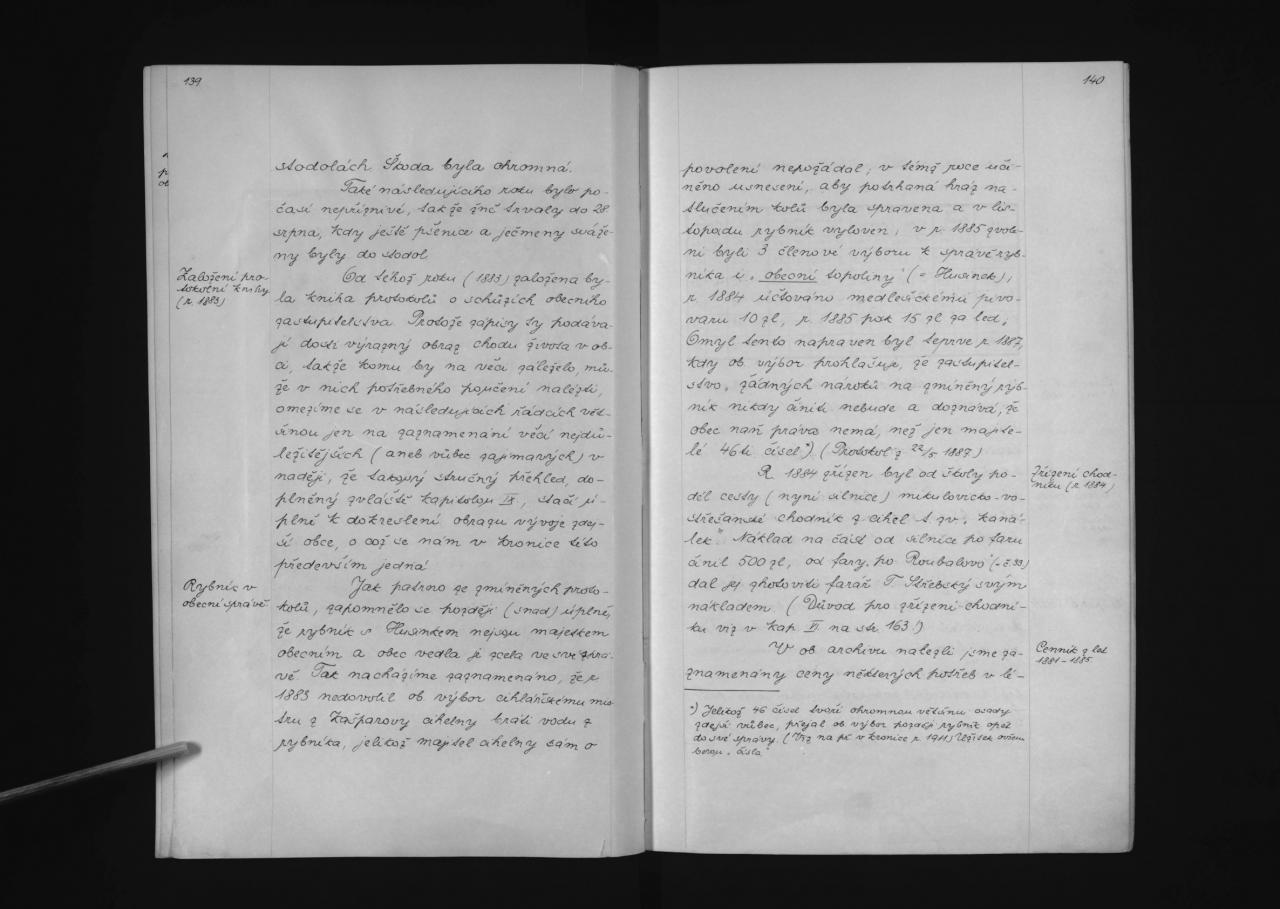 139
stodolách. Škoda byla ohromná.
Také následujícího roku bylo po-
časí nepříznivé, takže žně trvaly do 28.
srpna, kdy ještě pšenice a ječmeny sváže-
ny byly do stodol.
Založení pro-
tokolní knihy
(r. 1883)
Od téhož roku (1883) založena by-
la kniha protokolů o schůzích obecního
zastupitelstva. Protože zápisy ty podáva-
jí dosti výrazný obraz chodu života v ob-
ci, takže komu by na věci záleželo, mů-
že v nich potřebného poučení nalézti,
omezíme se v následujících řádcích vět-
šinou jen na zaznamenání věcí nejdů-
ležitějších (aneb vůbec zajímavých) v
naději, že takový stručný přehled, do-
plněný zvláště kapitolou IX, stačí ú-
plně k dokreslení obrazu vývoje zdej-
ší obce, o což se nám v kronice této
především jedná.
Rybník v
obecní správě
Jak patrno ze zmíněných proto-
kolů, zapomnělo se později (snad) úplně,
že rybník s Husinkem nejsou majetkem
obecním a obec vedla je zcela ve své sprá-
vě. Tak nacházíme zaznamenáno, že r.
1883 nedovolil ob. výbor cihlářskému mis-
tru z Kašparovy cihelny bráti vodu z
rybníka, jelikož majitel cihelny sám o
140
povolení nepožádal; v témž roce uči-
něno usnesení, aby potrhaná hráz na-
tlučením kolů byla spravena a v lis-
topadu rybník vyloven; v r. 1885 zvole-
ni byli 3 členové výboru k správě ryb-
níka i „obecní topoliny" (= Husinek);
r. 1884 účtováno medlešickému pivo-
varu 10 zl, r. 1885 pak 15 zl za led.
Omyl tento napraven byl teprve r. 1887,
kdy ob. výbor prohlašuje, že zastupitel-
stvo „žádných nároků na zmíněný ryb-
ník nikdy činiti nebude a doznává, že
obec naň práva nemá, než jen majite-
lé 46ti čísel"*) (Protokol z 22/5 1887)
Zřízení chod-
níku (r. 1884)
R. 1884 zřízen byl od školy po-
dél cesty (nyní silnice) mikulovicko-vo-
střešanské chodník z cihel t. zv. „kaná-
lek". Náklad na část od silnice po faru
činil 500 zl, od fary po „Roubalovo" (= č. 33)
dal jej zhotoviti farář T. Střebský svým
nákladem. (Důvod pro zřízení chodní-
ku viz v kap. VI. na str. 163!)
Cenník z let
1881-1885
V ob. archivu nalezli jsme za-
znamenány ceny některých potřeb v lé-
*) Jelikož 46 čísel tvoří ohromnou většinu osady
zdejší vůbec, přejal ob. výbor později rybník opět
do své správy. (Viz na př. v kronice r. 1911) Užitek ovšem
berou „čísla"